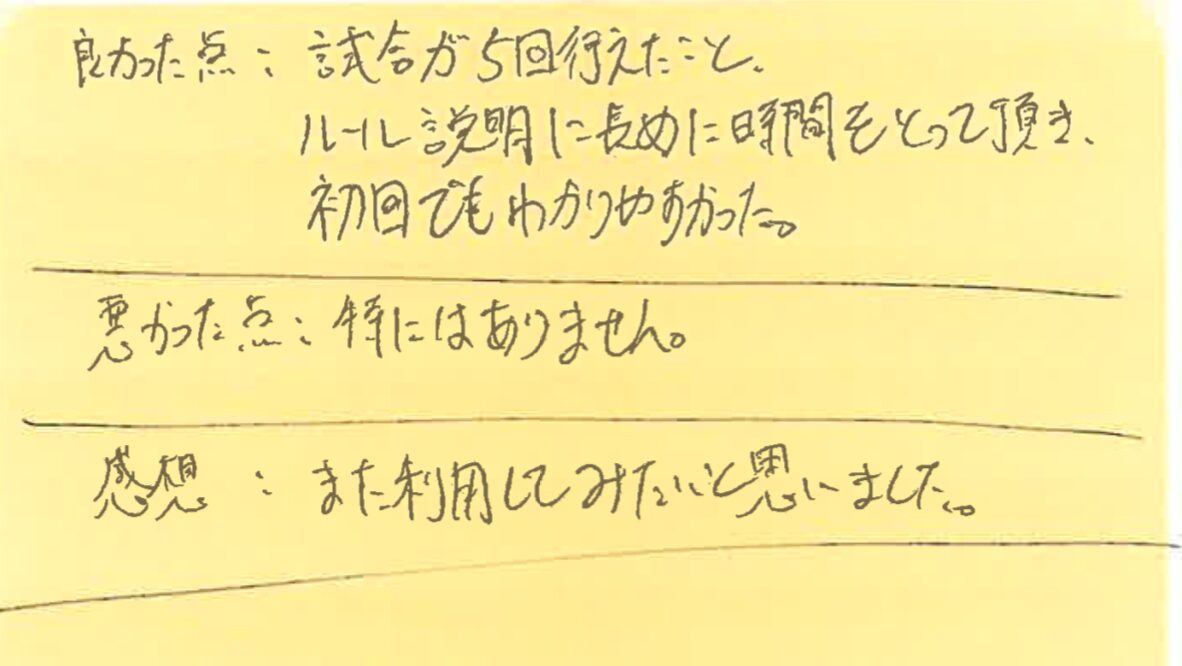 良かった点：試合が5回行えたこと、
ルール説明に長めに時間をとって頂き、
初回でもわかりやすかった。
悪かった点：特にはありません。
感想：また利用してみたいと思いました。